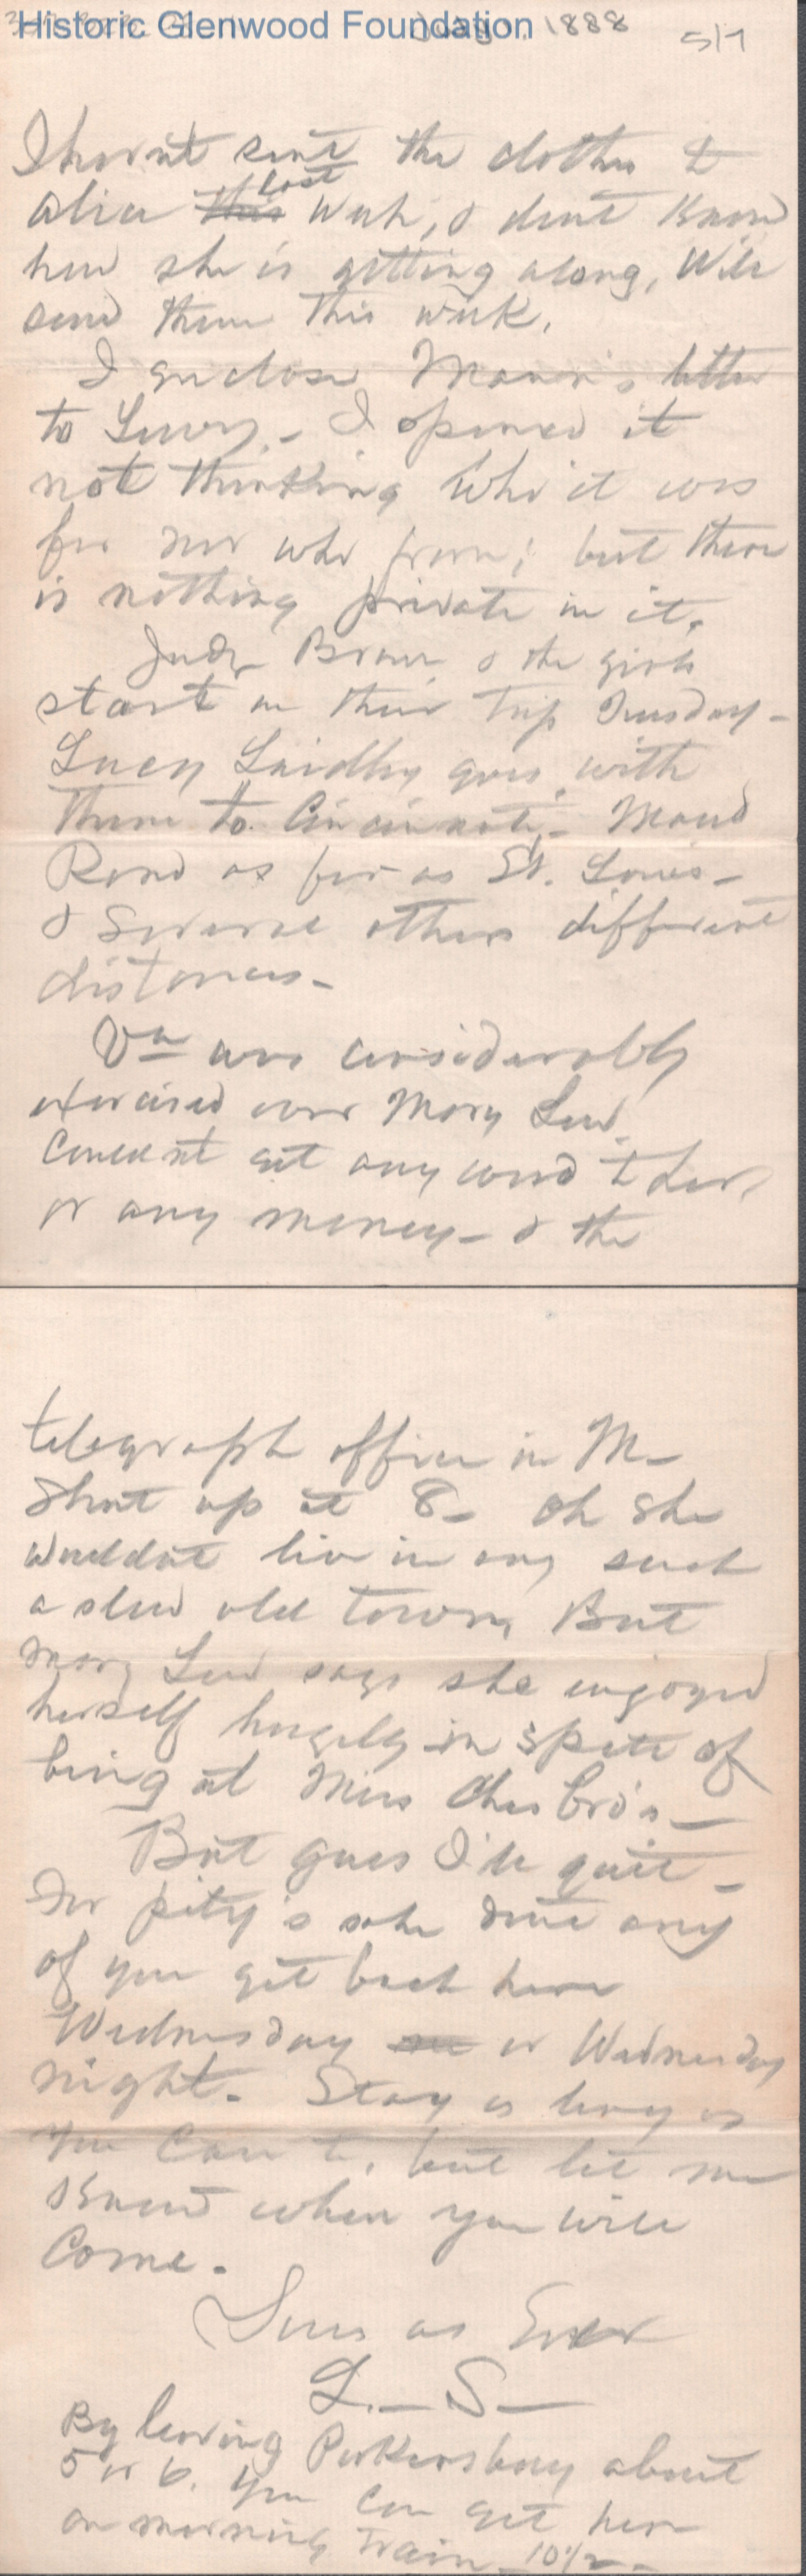 Historic Glenwood Foundation
1888 5/7
I havnt sent the clothes to
Alice this last week, & dont know
how she is getting along, Will
send them this week.
I enclose Mamm's letter
to Lucy. - I opened it
not thinking who it was
for nor who from; but there
is nothing private in it.
Judge Brown & the girls
start on their trip Tuesday -
Lucy Laidley goes with
them to Cincinnati - Maud
Rand as far as St. Louis -
& several others different
distances -
Va was considerably
exercised over Mary Lew
Couldnt get any word to her,
or any money - & the
telegraph office in M -
Shut up at 8 - Oh she
wouldnt live in any such
a slow old town, But
Mary Lew says she enjoyed
herself hugely in spite of
being at Miss Chesbro's -
But guess I'll quit -
For pity's sake dont any
of you get back here
Wednesday or Wednesday
night. Stay as long as
you care to, but let me
know when you will
Come.
as Ever
L. - S -
By leaving Parkersburg about
5 or 6. you can get here
on morning train 10 1/2 -